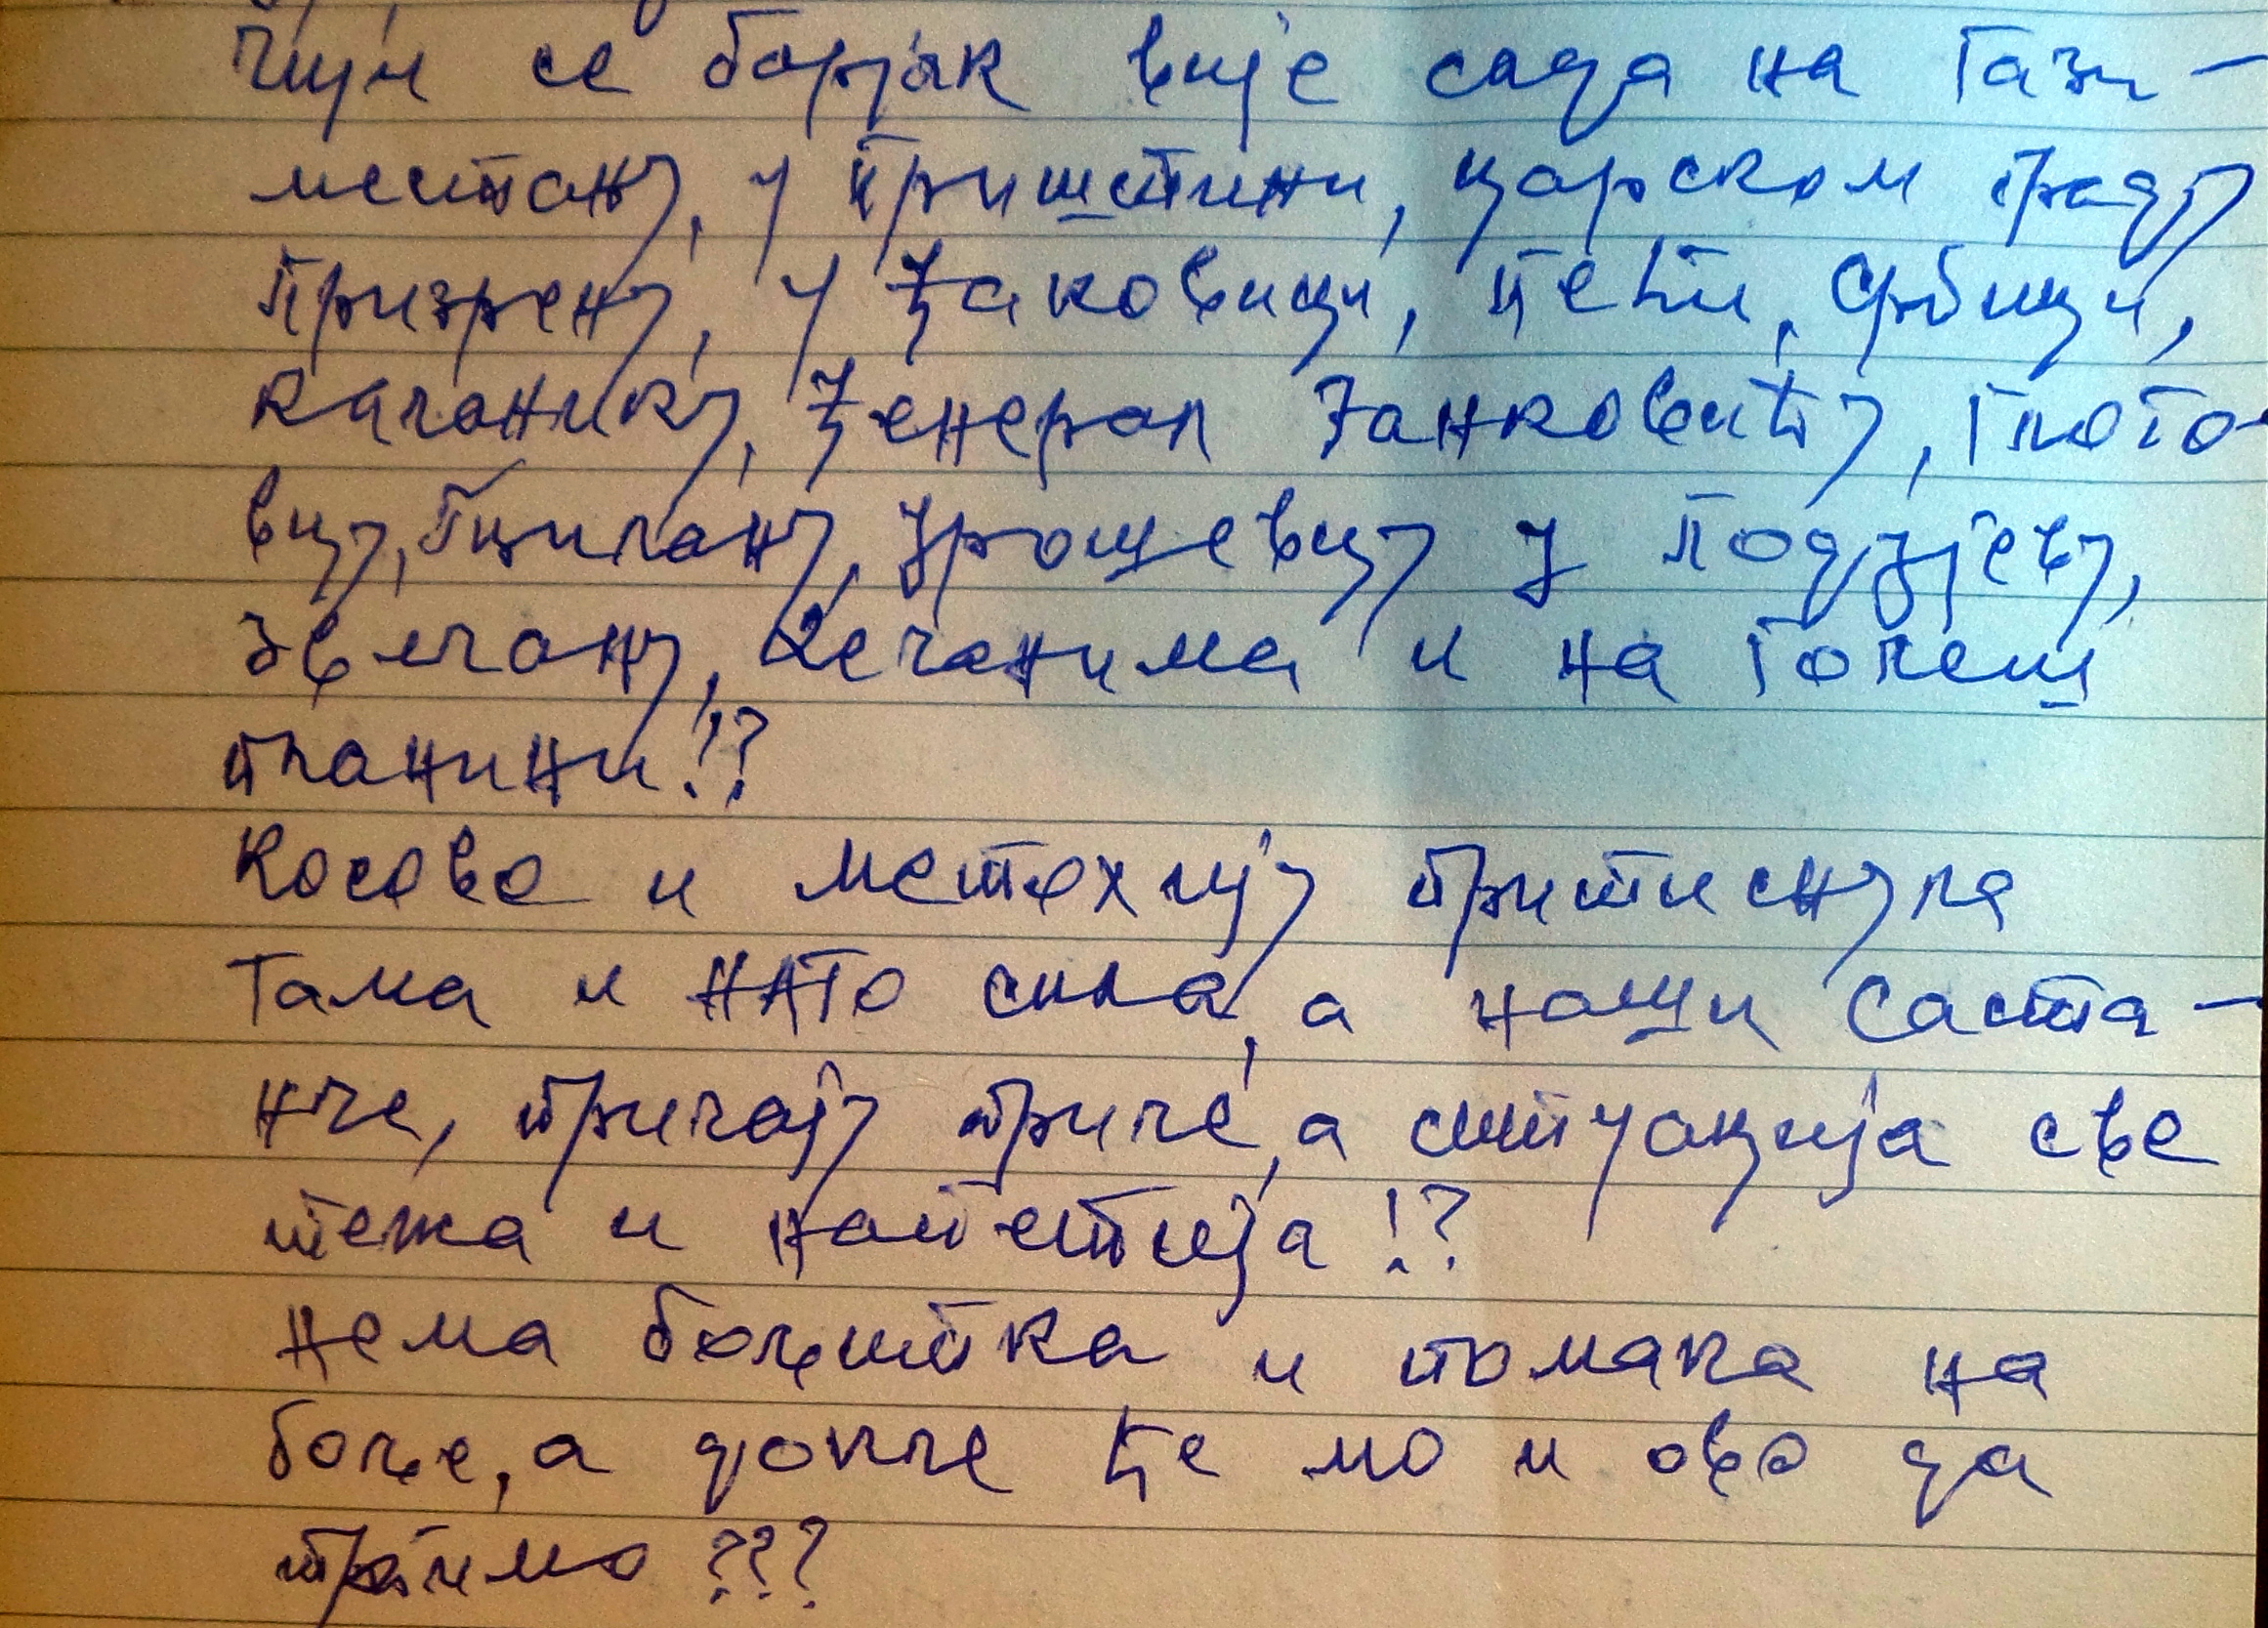 Чији се барјак вије сада на Гази-
местану, у Приштини, царском граду
Призрену, у Ђаковици, Пећи, Србици,
Качанику, Ђенерал Јанковићу, Глого-
вцу, Гњилану, Урошевцу у Подујеву,
Звечану, Дечанима и на Голеш
планини!?
Косово и Метохију притиснула
Тама и НАТО сила, а наши саста-
нче, причају приче, а ситуација све
тежа и напетија!?
Нема бољитка и помака на
боље, а докле ће мо и ово да
трпимо???